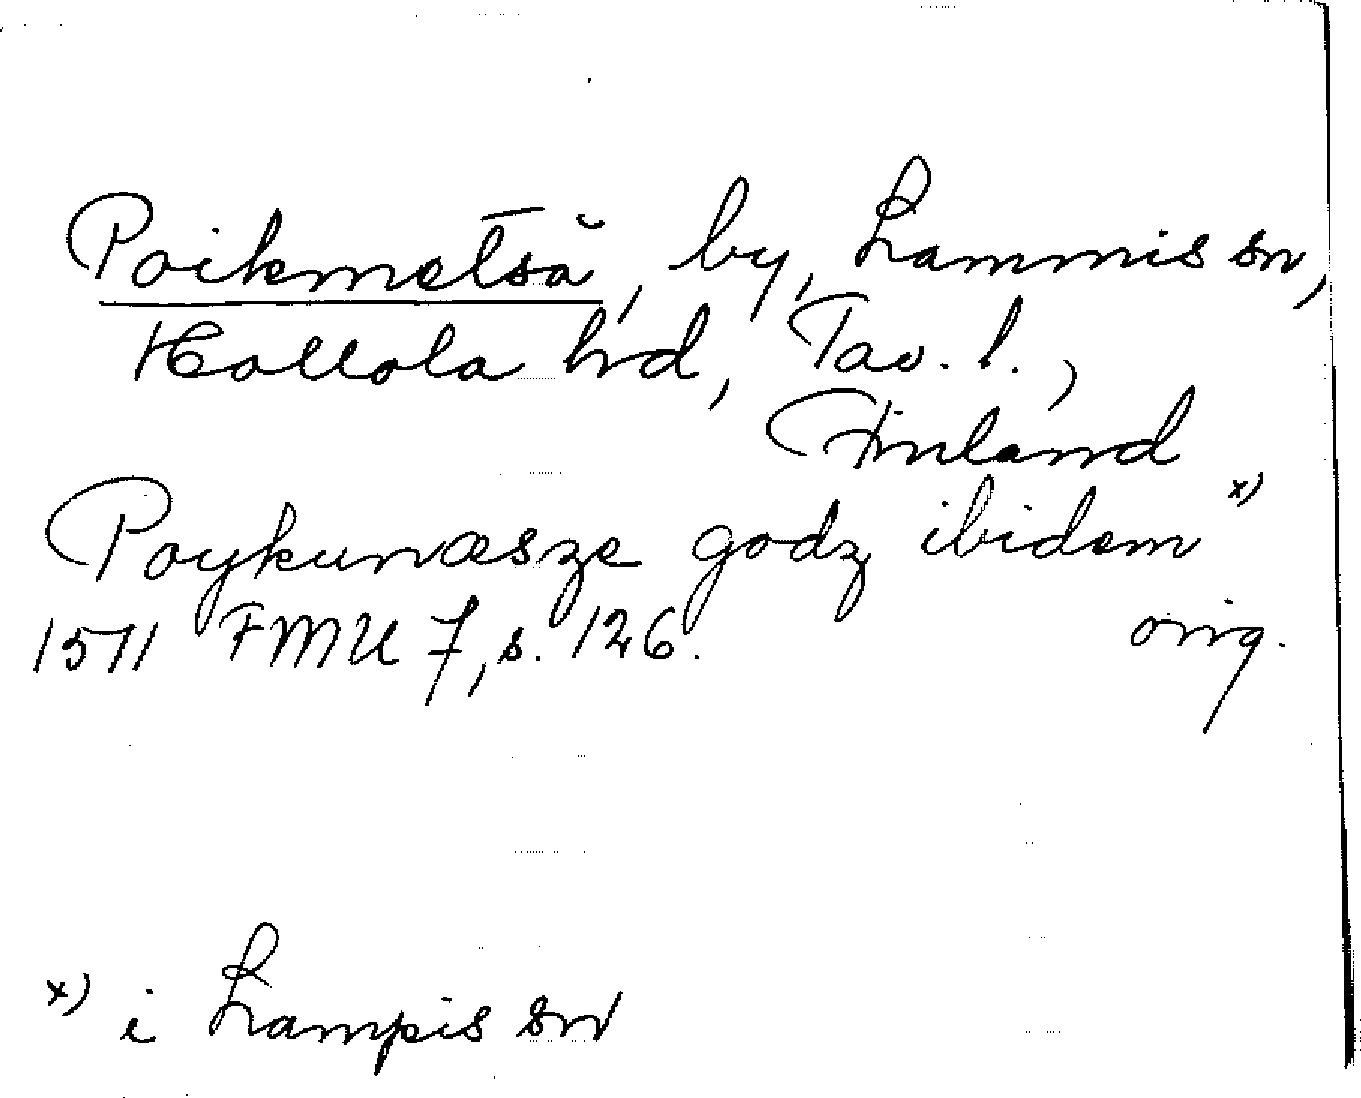 Poikmetsä, by, Lammis sn,
Hollola hd, Tav. l.,
Finland
Poykumæsze godz ibidem x)
1511 FMU 7, s. 126. orig.
x) i Lampis sn